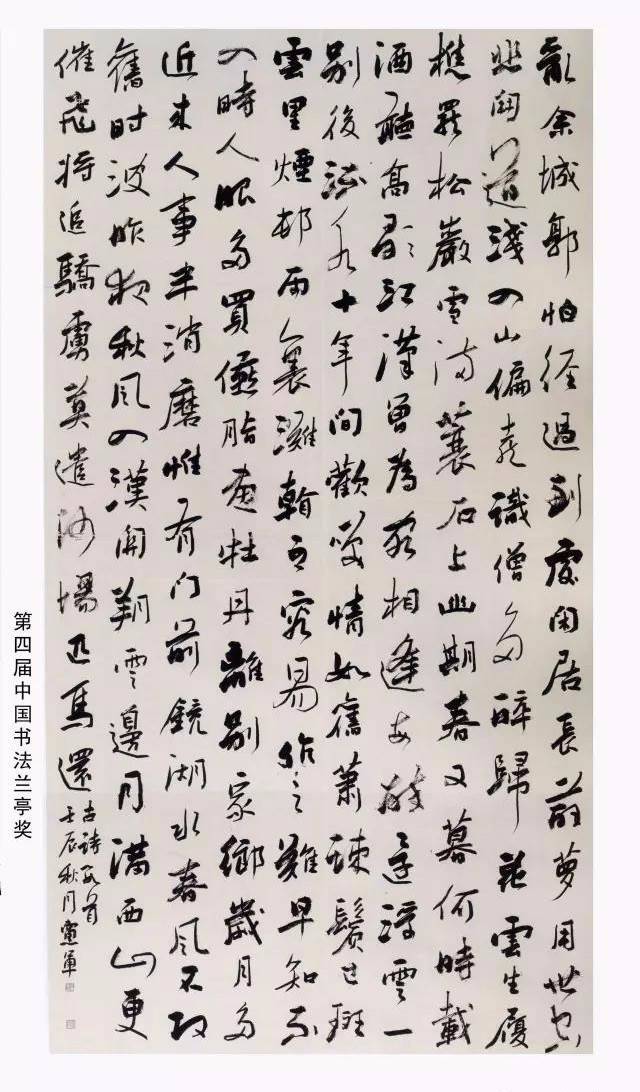 亂余城郭怕經過到處閑居長薜蘿用世空
悲聞道淺入山偏喜識僧多醉歸花雲生履
樵罷松巖雪滿蓑石上幽期春又暮何時載
酒聽高歌江漢曾為客相逢每醉還浮雲一
別後流水十年間歡笑情如舊蕭疎鬢已斑
雲里煙邨雨裏灘之容易作之難早知不
入時人眼多買脂畫牡丹離別家鄉歲月多
近來人事半消磨惟有門前鏡湖水春風不改
舊時波昨夜秋風入漢關朔雲邊月滿西山更
催飛將追驕虜莫遣沙場匹馬還
古詩五首
壬辰秋月憲軍
第四届中国书法兰亭奖